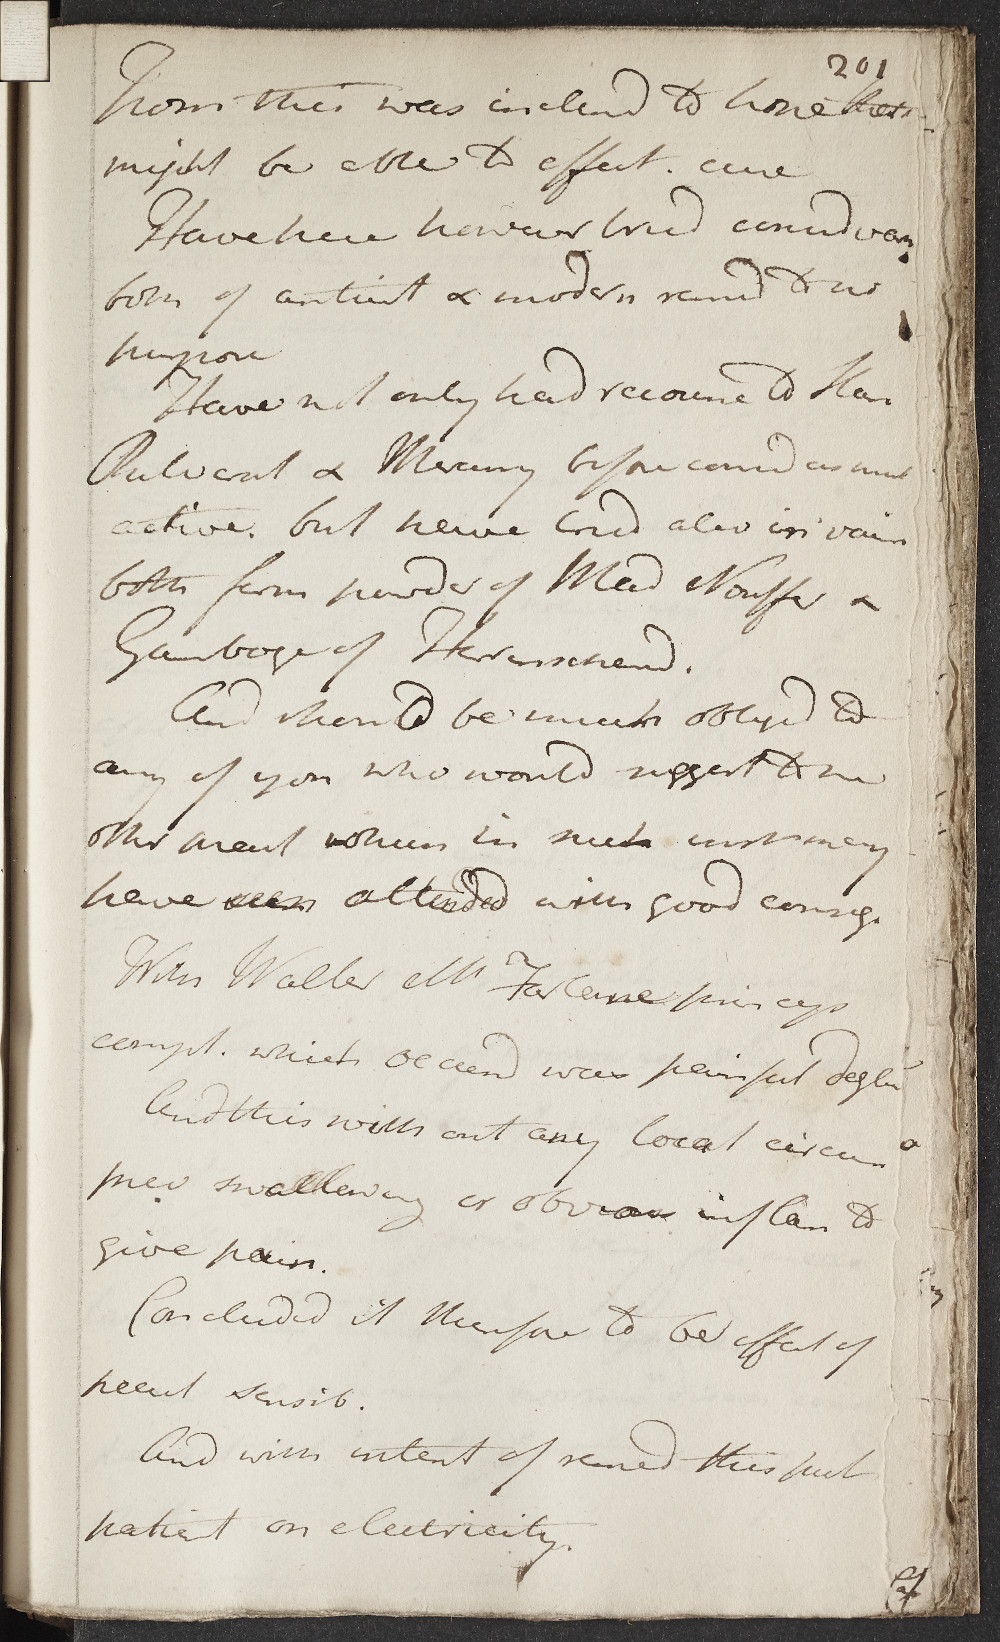 201
From this was inclend to hope that
might be able to effect. cure
Have here however tried consid vary
both of antient & modern remed to no
purpose
Have not only had recourse to Stan
Pulverat & Mercury before consid as most
active. but have tried also in vain
both fern powder of Mad Nouffer &
Gamboge of Herrnschend.
And should be much obliged to
any of you who would suggest to me
other meat whein in such inst may
have seen attended with good conseq.
With Walter McFarlane princip
compl. which occurd was painful deglu
And this without any local circum
prev swallowing or obvious inflam to
give pain.
Concluded it therefore to be effect of
pecul sensib.
And with intent of remed this put
patient on electricity.